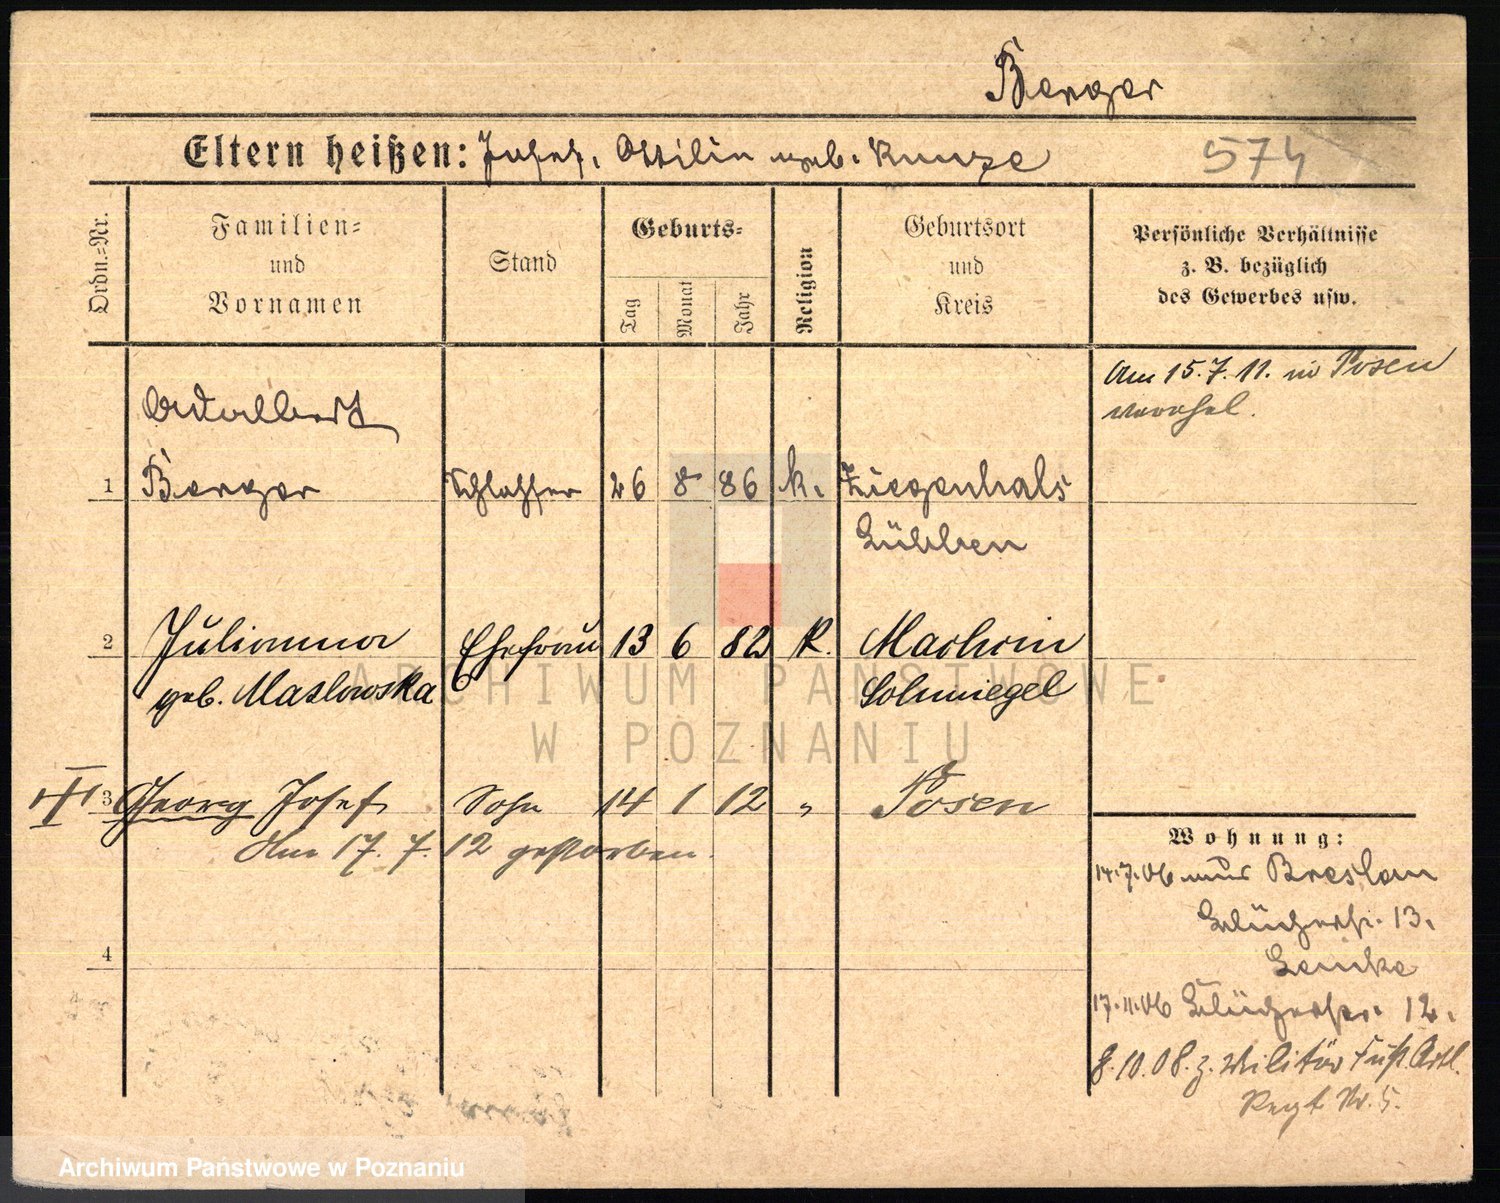 Berger
Eltern heißen: Josef, Ottilie geb. Kunze
574
Ordn.-Nr.
Familien-
und
Vornamen
Stand
Geburts-
Tag
Monat
Jahr
Religion
Geburtsort
und
Kreis
Persönliche Verhältnisse
z. B. bezüglich
des Gewerbes usw.
Am 15.7.11. in Posen
verehel.
Adalbert
1 Berger Schlosser 26 8 86 k. Ziegenhals
Lübben
2 Julianna Ehefrau 13 6 82 k. Machcin
geb. Maslowska Schmiegel
3 Georg Josef Sohn 14 1 12 " Posen
Am 17. 7. 12 gestorben.
4
Wohnung:
14.7.06 aus Breslau
13.
17.11.06 12.
8.10.08. z. Militär Fußart.
Regt Nr. 5.
ARCHIWUM PAŃSTWOWE
W POZNANIU
Archiwum Państwowe w Poznaniu